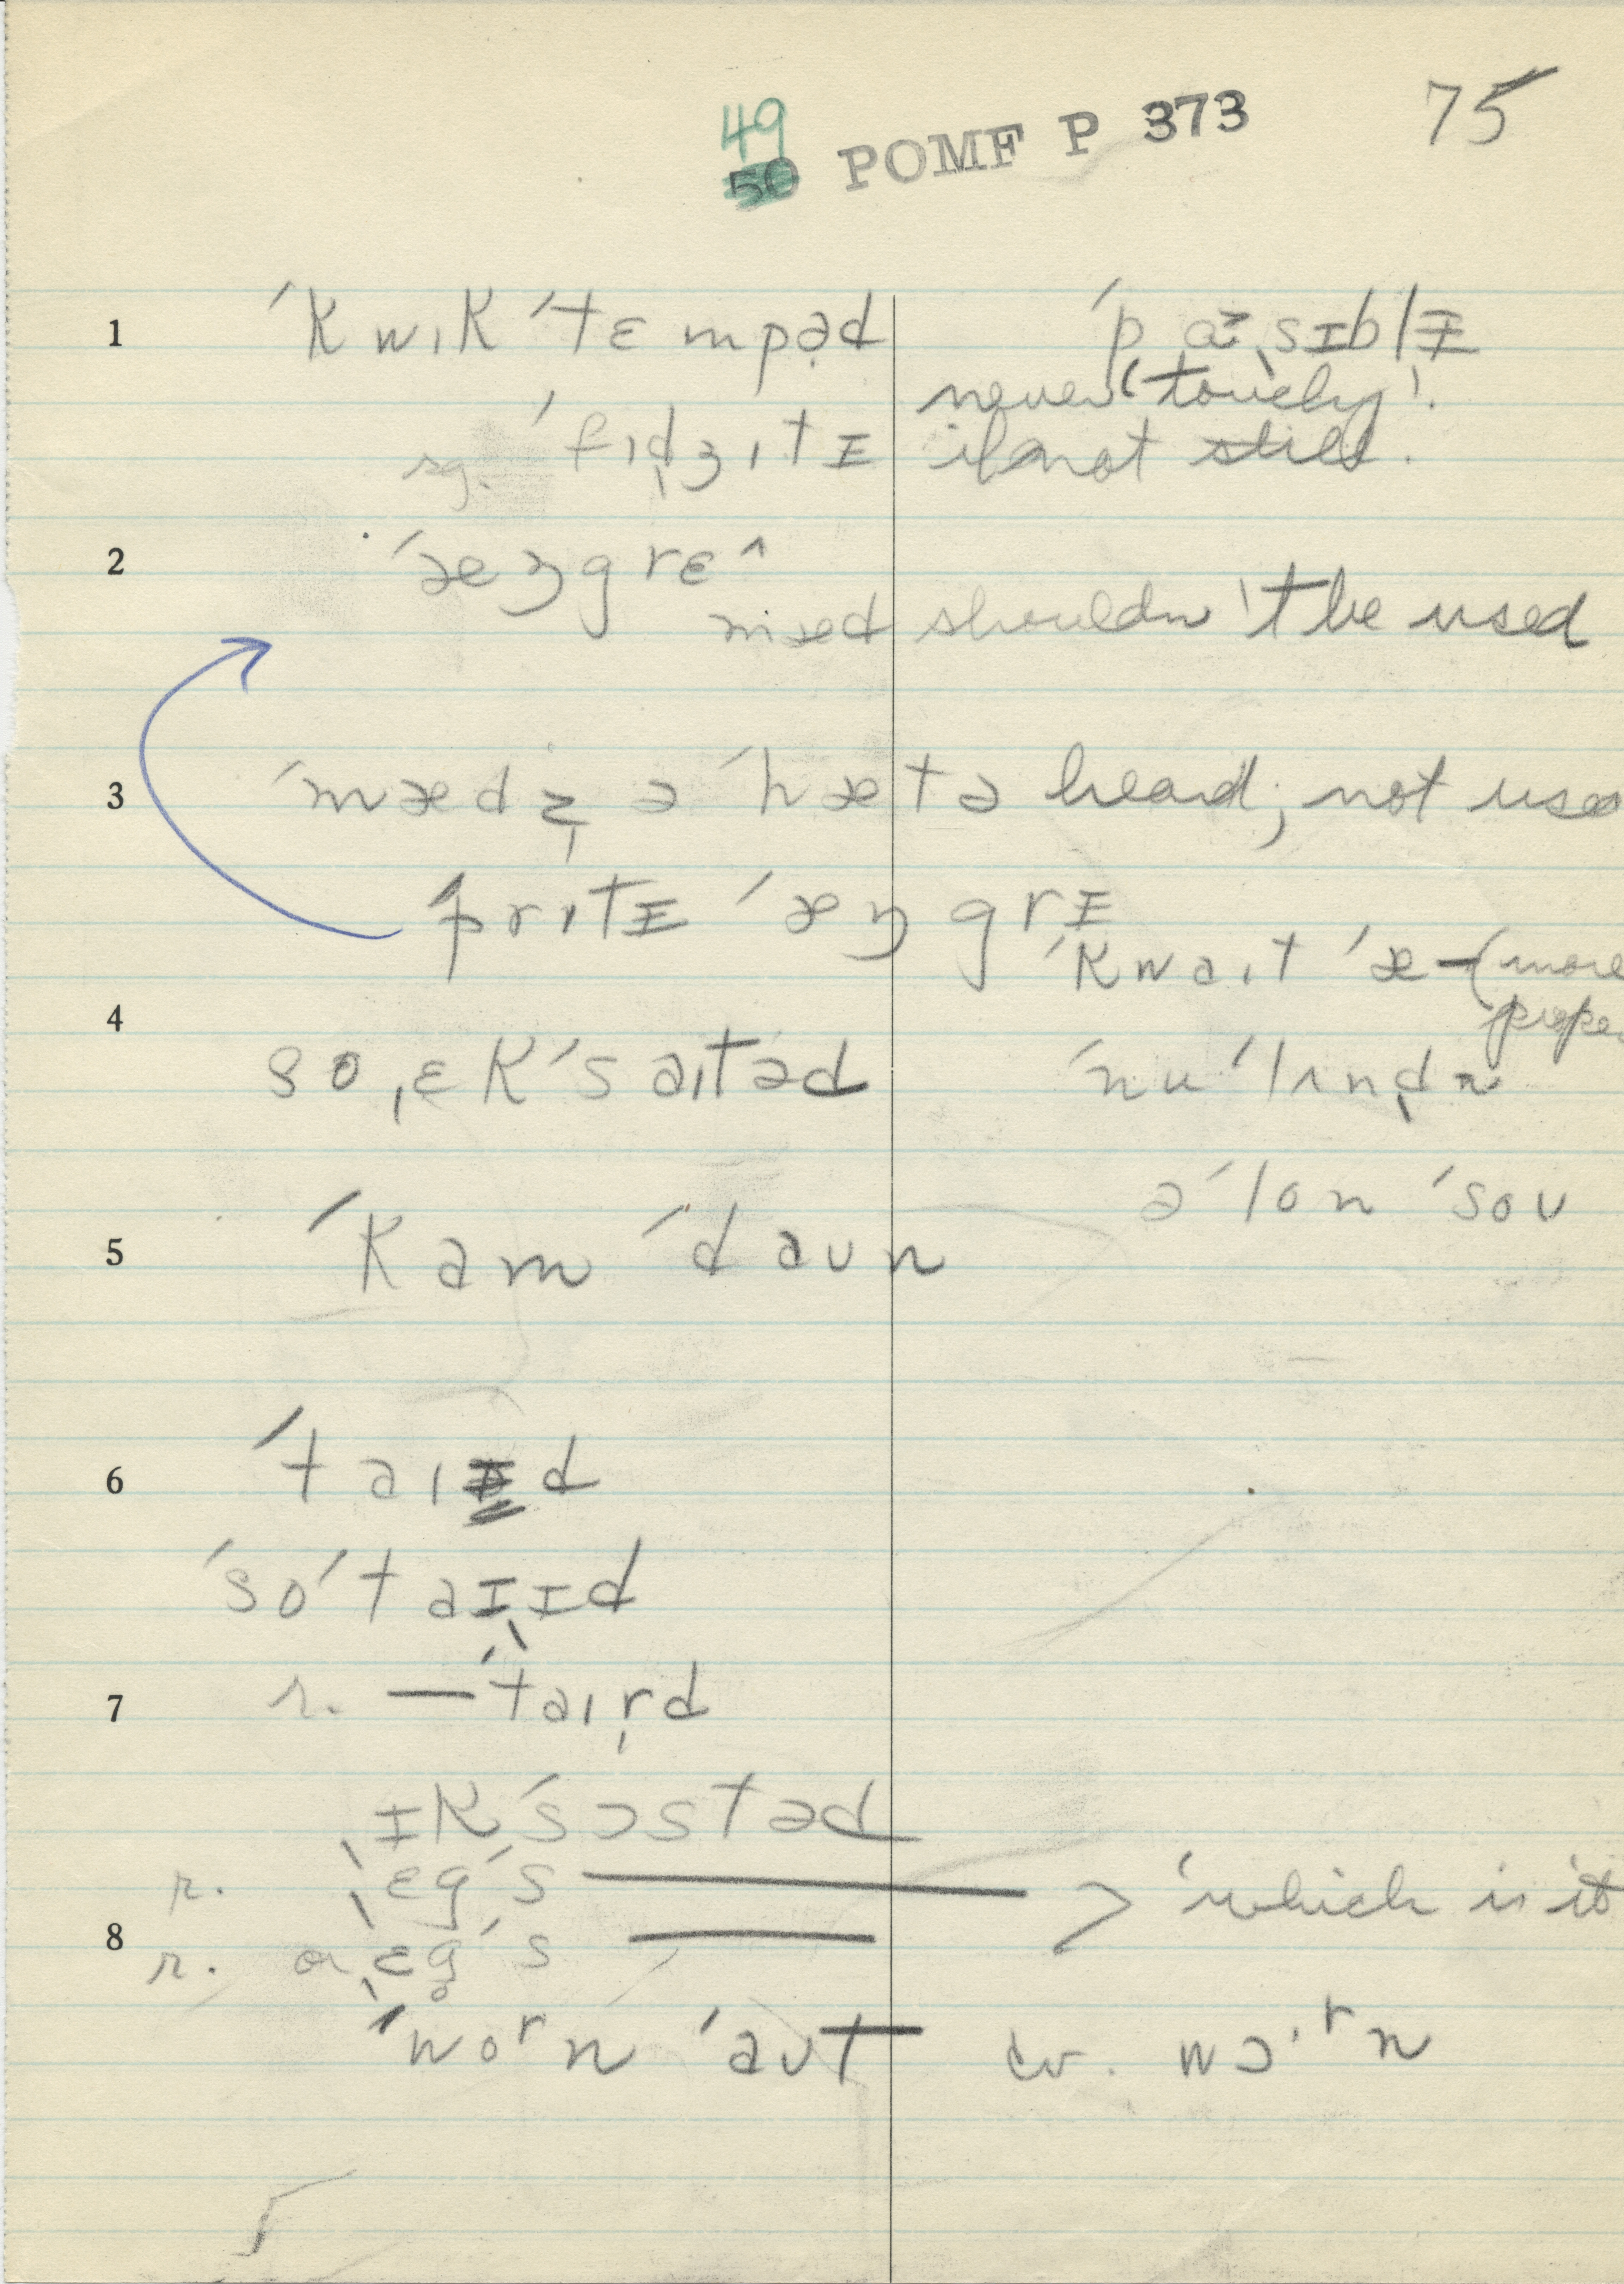 49 POMF P 373 75
50
1 ˈkwɪkˈtɛmpəd ˈpɑsɪblɪ
never 'touchy'.
sg. ˈfɪdʒɪtɪ if not still.
2 ˈæŋgrɛ^
mad shouldn't be used
3 ˈmædz ə ˈhætə heard; not used
ˈprɪtɪ ˈæŋgrɪ
ˈkwaɪt ˈæ— (more
4
so ˌɛkˈsaɪtəd ˈnuˈlʌndn
əˈlon ˈsoʊ
5 ˈkam ˈdaʊn
6 ˈtaɪd
ˈsoˈtaɪɪd
7 r. —ˈtaɪrd
ˌɪkˈsɔstəd
r. ˌɛgˈs—— > 'which is it
8 r. or ˌɛg̥ˈs ——
ˈwoʳn ˈaʊt cv. wɔ·ʳn